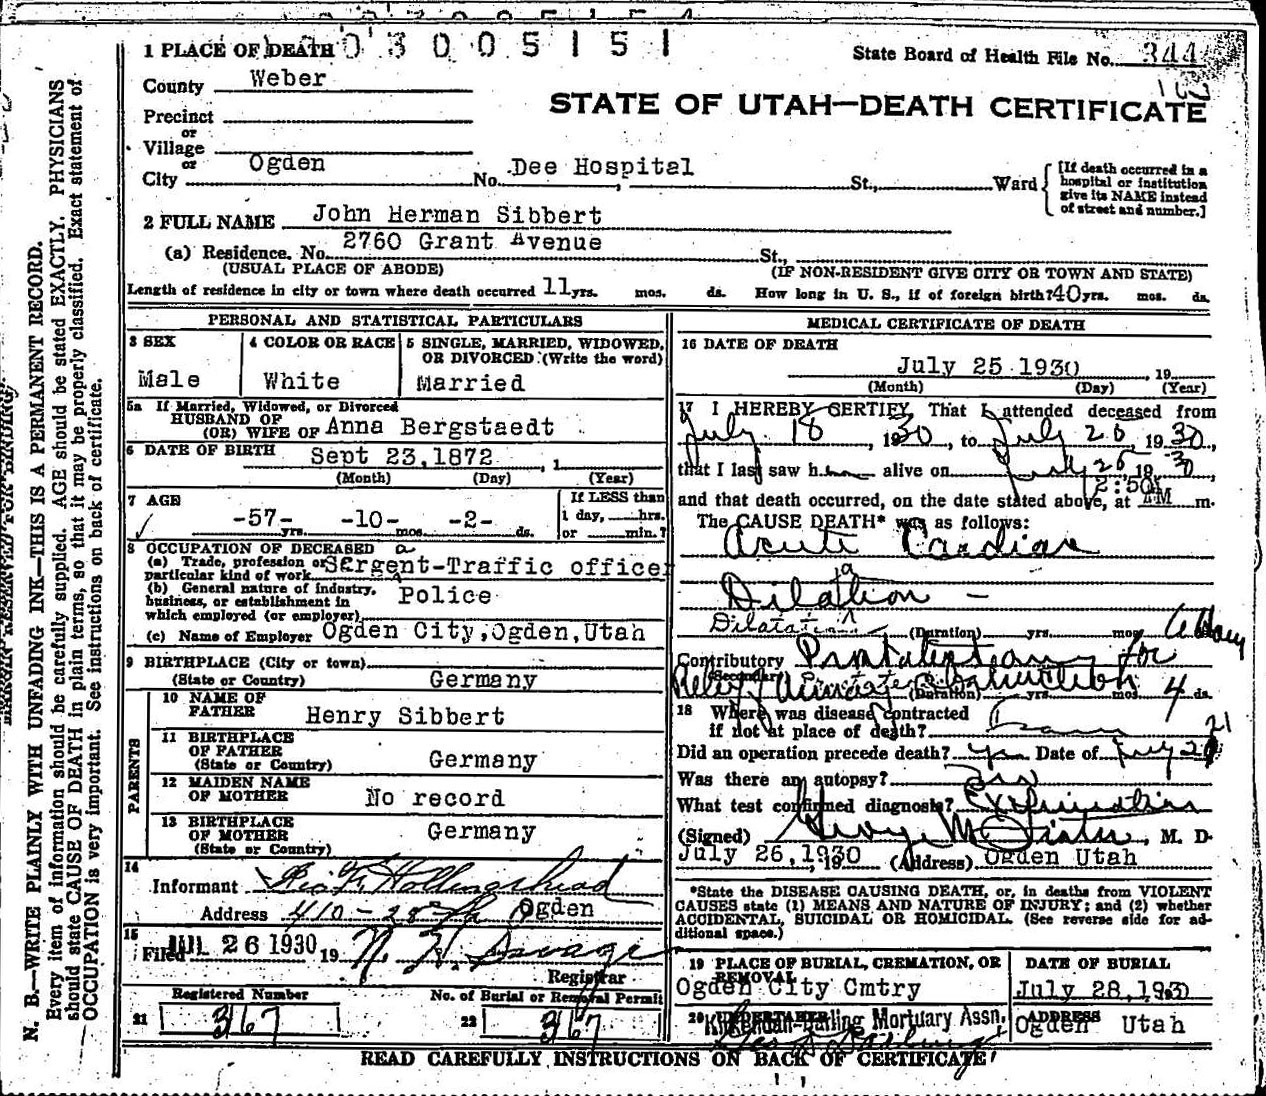 1 PLACE OF DEATH 0 3 0 0 5 1 5 1
State Board of Health File No. 344
County Weber
STATE OF UTAH—DEATH CERTIFICATE
Precinct
or
Village
or
City Ogden No. Dee Hospital St., Ward
[If death occurred in a
hospital or institution
give its NAME instead
of street and number.]
2 FULL NAME John Herman Sibbert
(a) Residence. No. 2760 Grant Avenue St.,
(USUAL PLACE OF ABODE) (IF NON-RESIDENT GIVE CITY OR TOWN AND STATE)
Length of residence in city or town where death occurred 11 yrs. mos. ds. How long in U. S., if of foreign birth? 40 yrs. mos. ds.
PERSONAL AND STATISTICAL PARTICULARS
3 SEX
Male
4 COLOR OR RACE
White
5 SINGLE, MARRIED, WIDOWED,
OR DIVORCED (Write the word)
Married
5a If Married, Widowed, or Divorced
HUSBAND OF
(OR) WIFE OF Anna Bergstaedt
6 DATE OF BIRTH Sept 23,1872 , 1
(Month) (Day) (Year)
7 AGE
-57- yrs. -10- mos. -2- ds.
If LESS than
1 day, hrs.
or min.?
8 OCCUPATION OF DECEASED
(a) Trade, profession or
particular kind of work SErgent-Traffic officer
a
(b) General nature of industry,
business, or establishment in
which employed (or employer) Police
(c) Name of Employer Ogden City,Ogden,Utah
9 BIRTHPLACE (City or town)
(State or Country) Germany
PARENTS
10 NAME OF
FATHER Henry Sibbert
11 BIRTHPLACE
OF FATHER
(State or Country) Germany
12 MAIDEN NAME
OF MOTHER No record
13 BIRTHPLACE
OF MOTHER
(State or Country) Germany
14
Informant Hollingshead
Address 410 - 28th Ogden
15
Filed JUL 26 1930 19 N. H. Savage
Registrar
Registered Number
21 367
No. of Burial or Removal Permit
22 367
MEDICAL CERTIFICATE OF DEATH
16 DATE OF DEATH
July 25 1930 , 19
(Month) (Day) (Year)
17 I HEREBY CERTIFY, That I attended deceased from
July 18 , 1930, to July 25, 1930,
that I last saw him alive on July 25, 1930,
and that death occurred, on the date stated above, at 2:50 AM m.
The CAUSE DEATH* was as follows:
Acute Cardiac
Dilation —
a
Dilatation (Duration) yrs. mos.
Contributory Prostatectomy for
(Secondary)
Relief Urinary Obstruction
(Duration) yrs. mos. 4 ds.
18 Where was disease contracted
if not at place of death?
Did an operation precede death? yes Date of July 21
Was there an autopsy?
What test confirmed diagnosis?
(Signed) , M. D.
July 26,1930 (Address) Ogden Utah
*State the DISEASE CAUSING DEATH, or, in deaths from VIOLENT
CAUSES state (1) MEANS AND NATURE OF INJURY; and (2) whether
ACCIDENTAL, SUICIDAL OR HOMICIDAL. (See reverse side for ad-
ditional space.)
19 PLACE OF BURIAL, CREMATION, OR
REMOVAL
Ogden City Cmtry
DATE OF BURIAL
July 28,193
20 UNDERTAKER
Mortuary Assn.
ADDRESS
Ogden Utah
READ CAREFULLY INSTRUCTIONS ON BACK OF CERTIFICATE
N. B.—WRITE PLAINLY WITH UNFADING INK—THIS IS A PERMANENT RECORD.
Every item of information should be carefully supplied. AGE should be stated EXACTLY. PHYSICIANS
should state CAUSE OF DEATH in plain terms, so that it may be properly classified. Exact statement of
OCCUPATION is very important. See instructions on back of certificate.